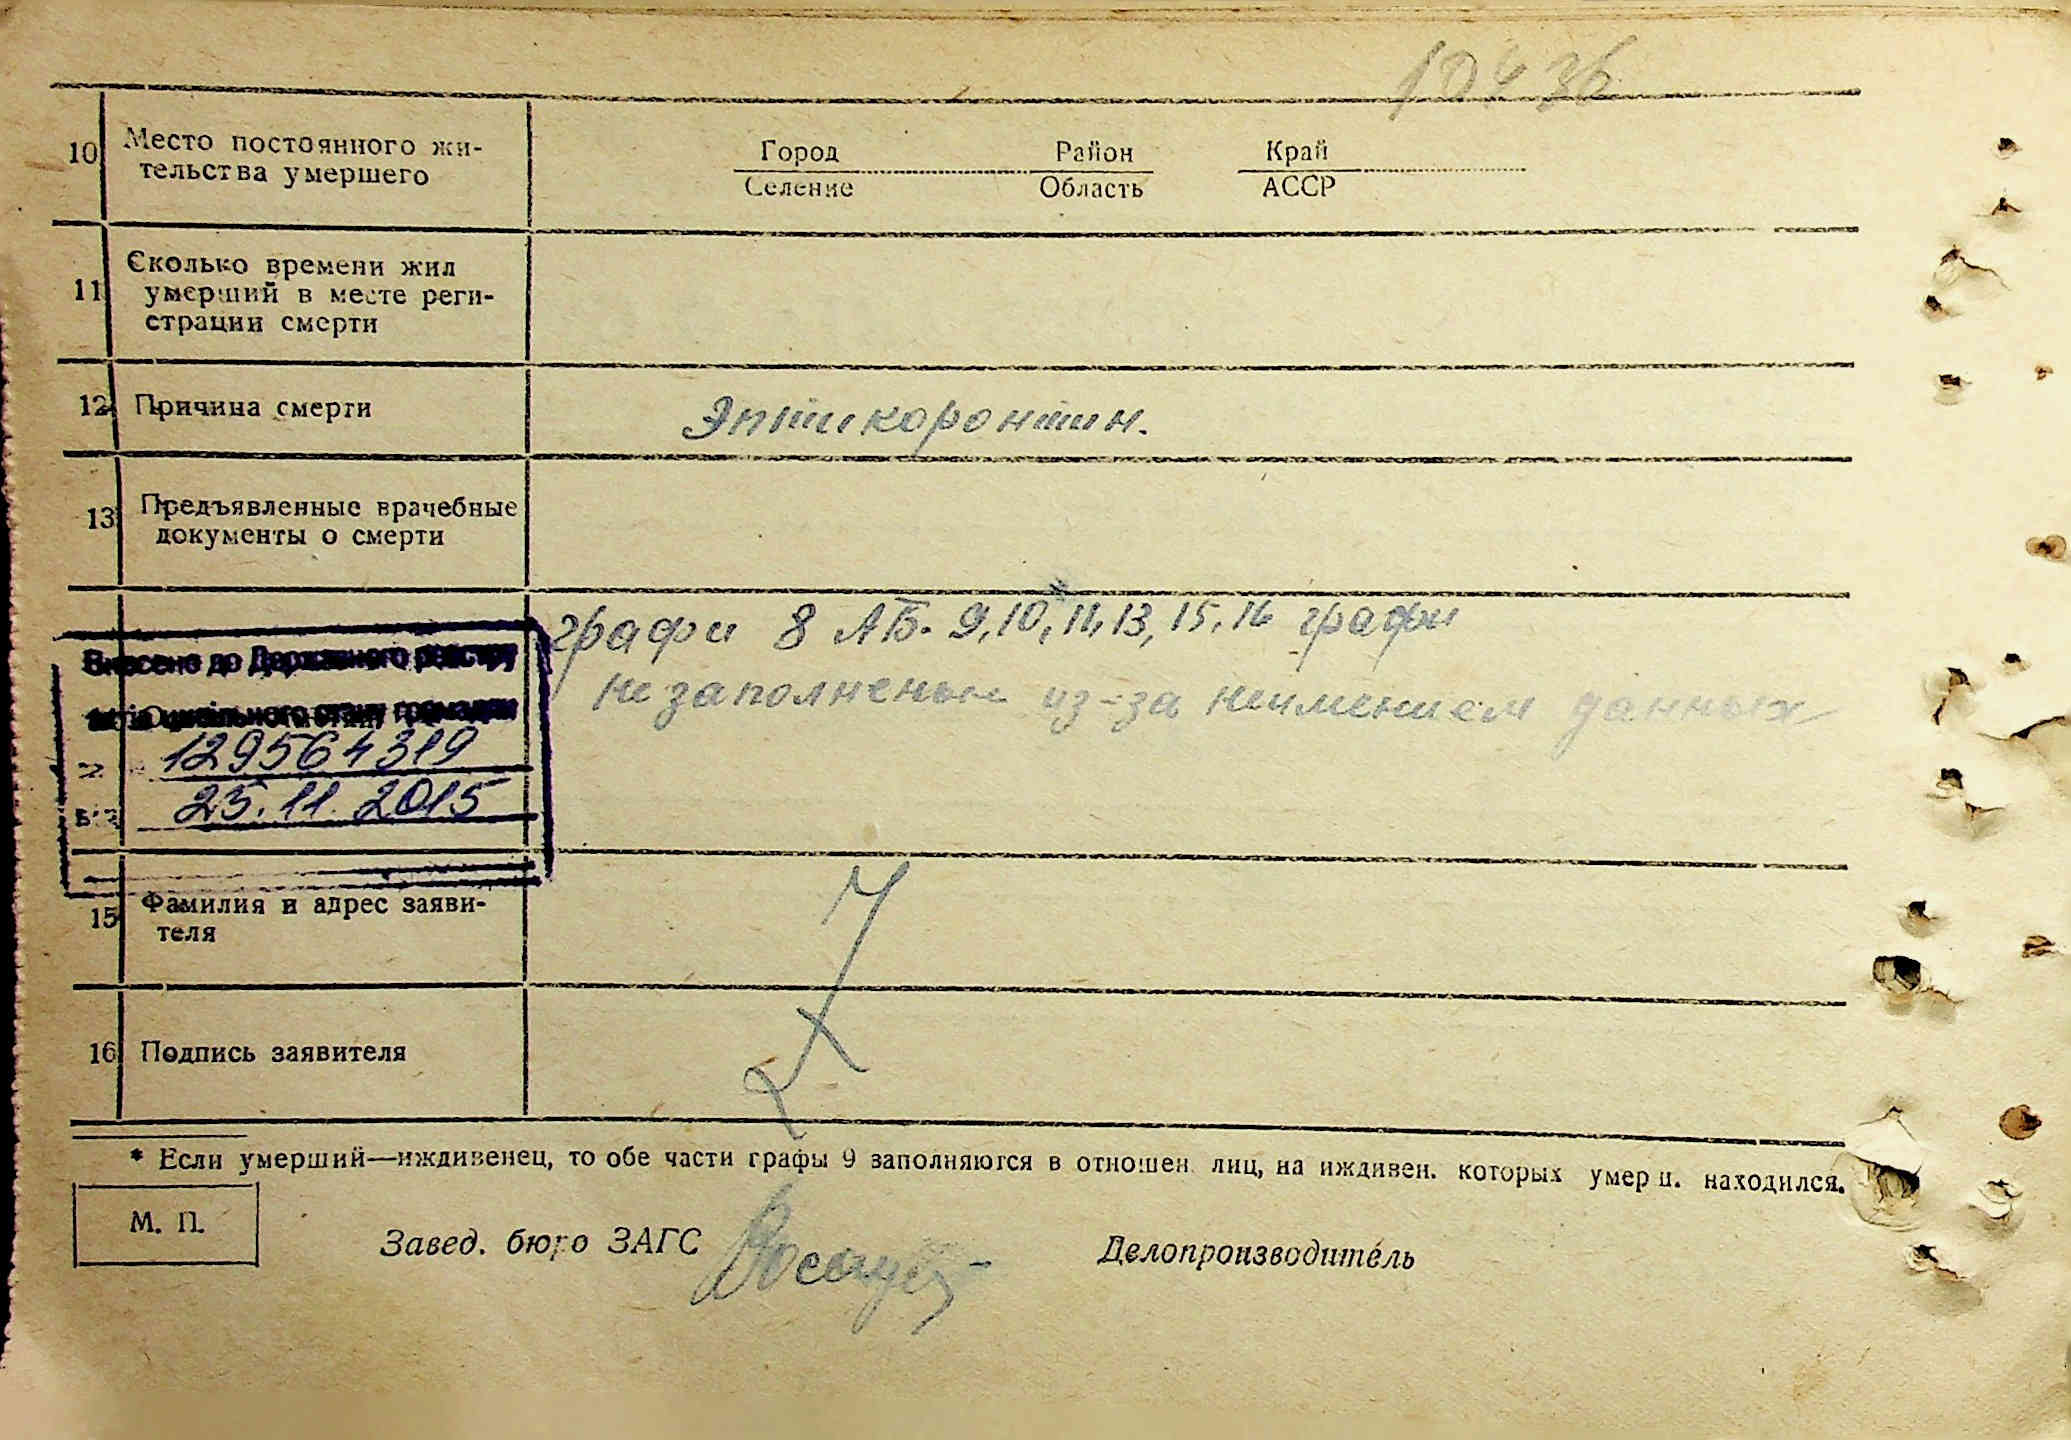 10436
10 Место постоянного жи-
тельства умершего
Город Район Край
Селение Область АССР
11 Сколько времени жил
умерший в месте реги-
страции смерти
12 Причина смерти Эптикоронтин.
13 Предъявленные врачебные
документы о смерти
графи 8 АБ. 9, 10, 11, 13, 15, 16 графи
не заполненьι из-за неимением данных
Внесено до Державного реєстру
актів цивільного стану громадян
129564319
від 25.11.2015
15 Фамилия и адрес заяви-
теля
16 Подпись заявителя
* Если умерший—иждивенец, то обе части графы 9 заполняются в отношен. лиц, на иждивен. которых умерш. находился.
М. П.
Завед. бюро ЗАГС Делопроизводитель